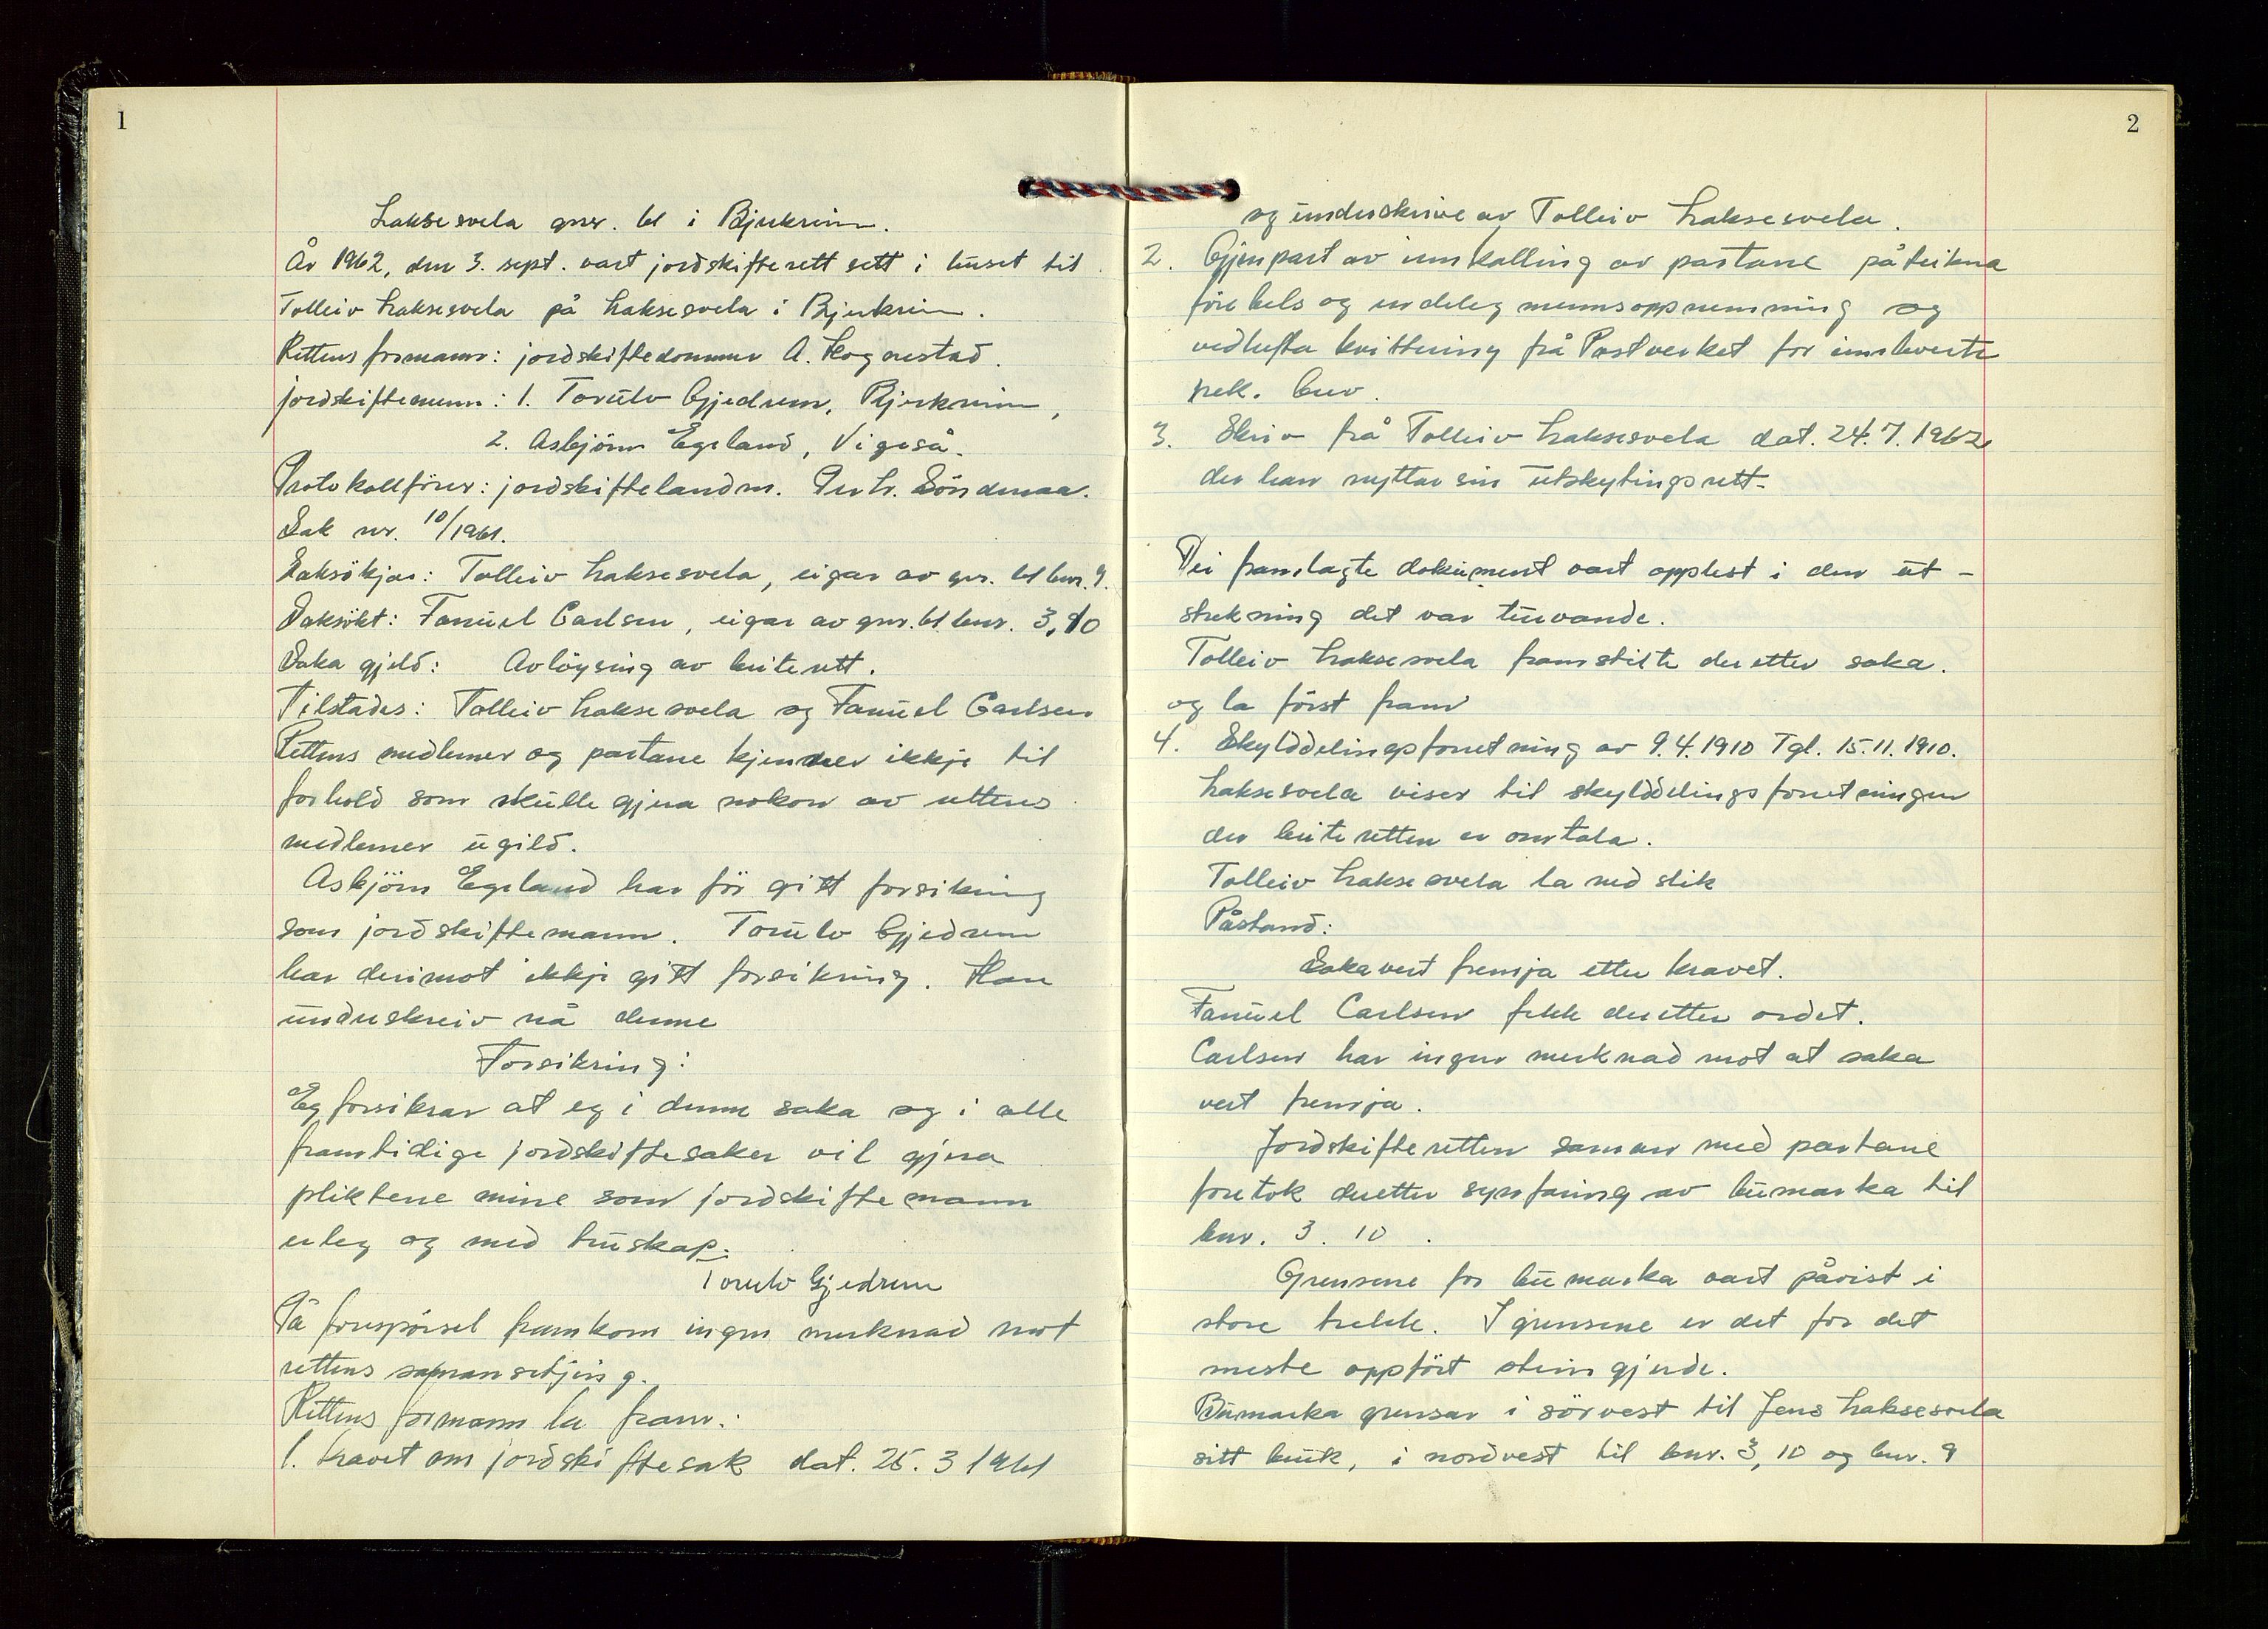 1
Laksesvela gnr. 61 i Bjerkreim.
År 1962, den 3. sept. vart jordskifterett sett i huset til
Tolleiv Laksesvela på Laksesvela i Bjerkreim.
Rettens formann: jordskiftedommer A. Hognestad.
jordskiftemenn: 1. Torulv Gjedrem, Bjerkreim,
2. Asbjörn Egeland, Vigeså.
Protokollförer: jordskiftelandm. Söndenaa.
Sak nr. 10/1961.
Saksökjar: Tolleiv Laksesvela, eigar av gnr. 61 bnr. 9.
Saksökt: Fanuel Carlsen, eigar av gnr. 61 bnr. 3,10
Saka gjeld: Avlöysing av beiterett.
Tilstades: Tolleiv Laksesvela og Fanuel Carlsen
Rettens medlemer og partane kjenner ikkje til
forhold som skulle gjera nokon av rettens
medlemer ugild.
Asbjörn Egeland har för gitt forsikring
som jordskiftemann. Torulv Gjedrem
har derimot ikkje gitt forsikring. Han
underskreiv nå denne
Forsikring:
Eg forsikrar at eg i denne saka og i alle
framtidige jordskiftesaker vil gjera
pliktene mine som jordskiftemann
erleg og med truskap.
Torulv Gjedrem
På forespörsel framkom ingen merknad mot
rettens samansetjing.
Rettens formann la fram:
1. Kravet om jordskiftesak dat. 25. 3 1961
2
og underskrive av Tolleiv Laksesvela.
2. Gjenpart av innkalling av partane påteikna
förebels og endeleg mennsoppnemning og
vedhefta kvittering frå Postverket for innleverte
rek. brev.
3. Skriv frå Tolleiv Laksesvela dat. 24.7.1962
der han nyttar sin utskytingsrett.
Dei framlagte dokument vart opplest i den ut-
strekning det var turvande.
Tolleiv Laksesvela framstilte deretter saka.
og la först fram
4. Skylddelingsforretning av 9.4.1910 Tgl. 15.11.1910.
Laksesvela viser til skylddelingsforretningen
der beiteretten er omtala.
Tolleiv Laksesvela la ned slik
Påstand:
Saka vert fremja etter kravet.
Fanuel Carlsen fekk deretter ordet.
Carlsen har ingen merknad mot at saka
vert fremja.
Jordskifteretten saman med partane
foretok deretter synfaring av bumarka til
bnr. 3. 10.
Grensene for bumarka vart påvist i
store trekk. I grensene er det for det
meste oppfört steingjerde.
Bumarka grensar i sörvest til Jens Laksesvela
sitt bruk, i nordvest til bnr. 3, 10 og bnr. 9